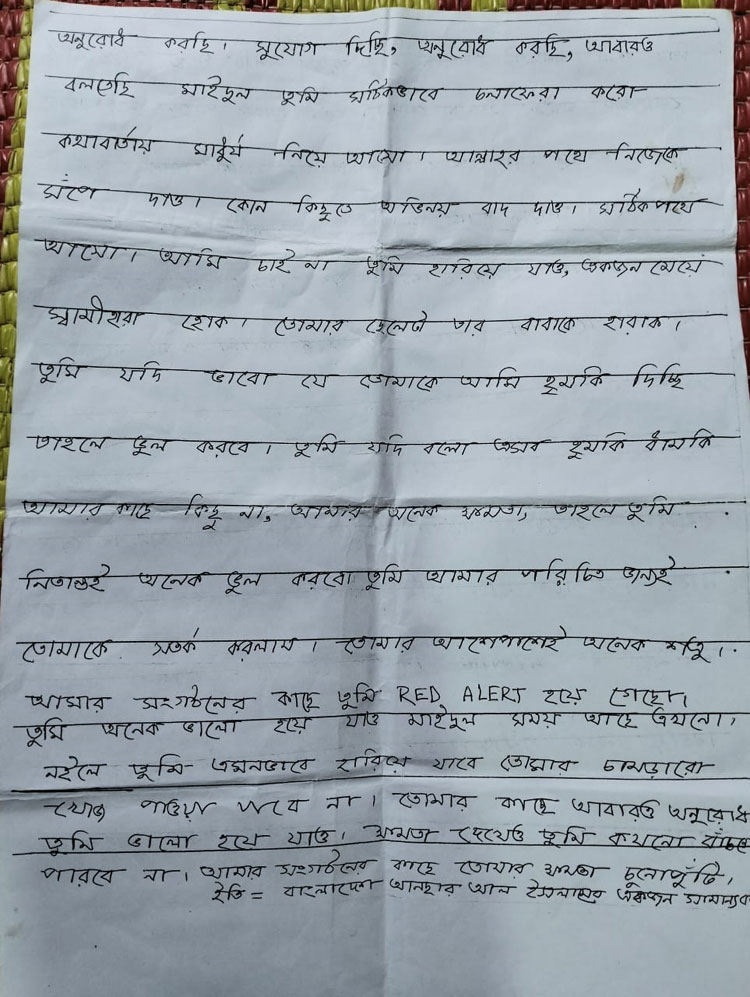 অনুরোধ করছি। সুযোগ দিচ্ছি, অনুরোধ করছি, আবারও
বলতেছি মাইদুল তুমি সঠিকভাবে চলাফেরা করো
কথাবার্তায় মাধুর্য নিয়ে আসো। আল্লাহর পথে নিজেকে
সঁপে দাও। কোন কিছুতে অভিনয় বাদ দাও। সঠিক পথে
আসো। আমি চাই না তুমি হারিয়ে যাও, একজন মেয়ে
স্বামীহারা হোক। তোমার ছেলেটা তার বাবাকে হারাক।
তুমি যদি ভাবো যে তোমাকে আমি হুমকি দিচ্ছি
তাহলে ভুল করবে। তুমি যদি বলো এসব হুমকি ধামকি
আমার কাছে কিছু না, আমার অনেক ক্ষমতা, তাহলে তুমি
নিতান্তই অনেক ভুল করবে। তুমি আমার পরিচিত জন্যই
তোমাকে সতর্ক করলাম। তোমার আশেপাশেই অনেক শত্রু।
আমার সংগঠনের কাছে তুমি RED ALERT হয়ে গেছো।
তুমি অনেক ভালো হয়ে যাও মাইদুল সময় আছে এখনো।
নইলে তুমি এমনভাবে হারিয়ে যাবে তোমার চামড়ারো
খোজ পাওয়া যাবে না। তোমার কাছে আবারও অনুরোধ
তুমি ভালো হয়ে যাও। ক্ষমতা দেখেও তুমি কখনো বাঁচতে
পারবে না। আমার সংগঠনের কাছে তোমার ক্ষমতা চুনোপুঁটি।
ইতি = বাংলাদেশ আনছার আল ইসলামের একজন সামান্য